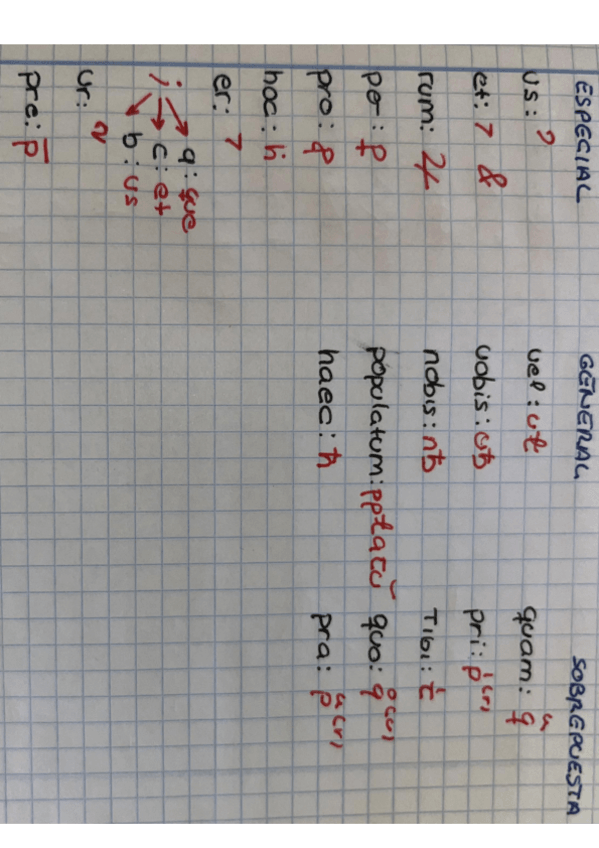 ESPECIAL
us: ꝰ
et: ⁊ &
rum: ꝝ
per: ꝑ
pro: ꝓ
hoc: h̊
er: ⁊
; q: que
c: et
b: us
ur:
pre: p̄
GENERAL
uel: uł
uobis: uƀ
nobis: nƀ
populatum: ppłatū
haec: ħ
SOBREPUESTA
quam: qᵃ
pri: pⁱ(r)
Tibi: tⁱ
quo: qᵒ(u)
pra: pᵃ(r)